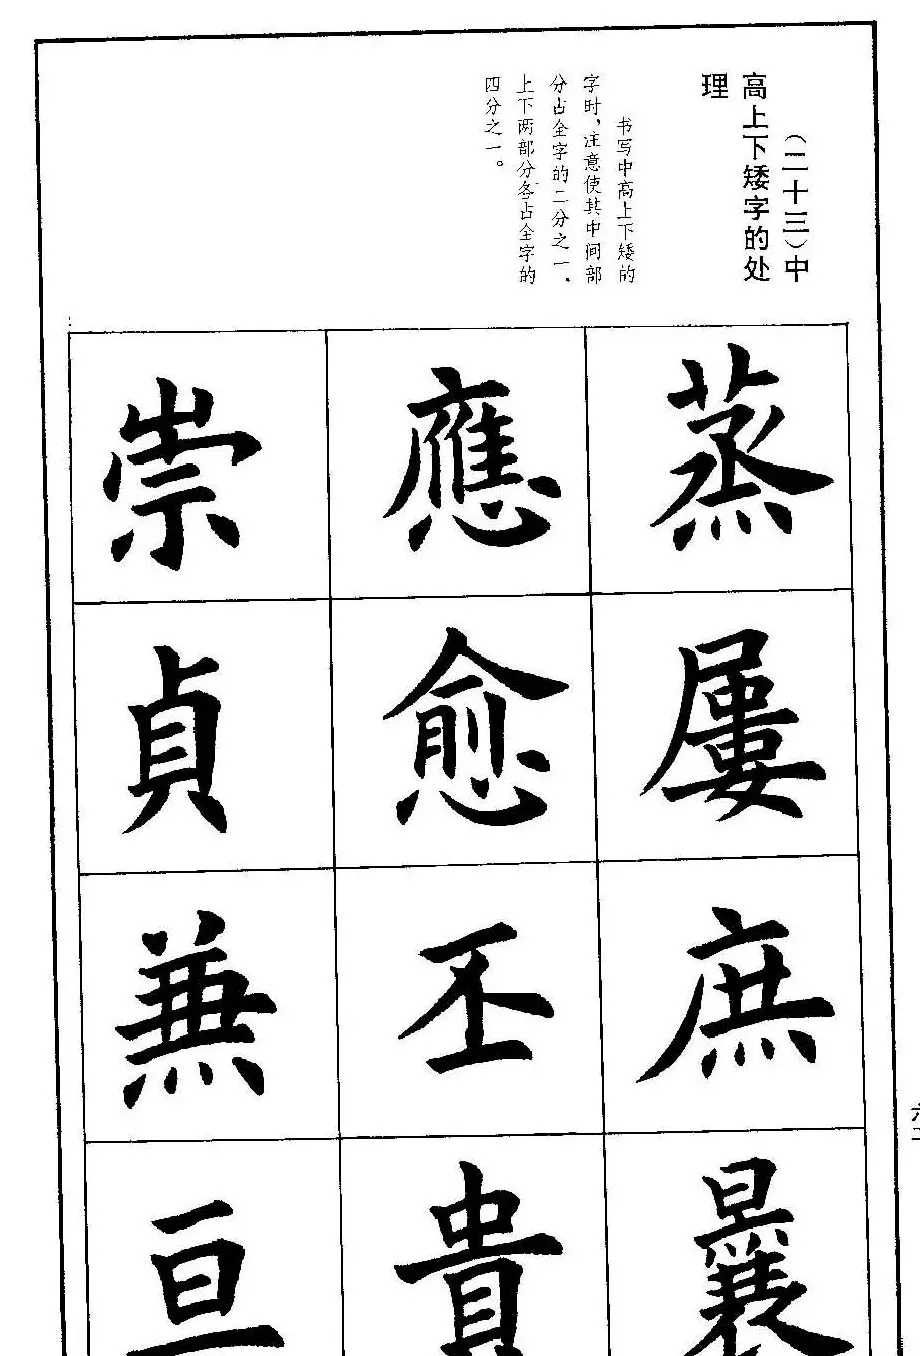 （二十三）中
高上下矮字的处
理
书写中高上下矮的
字时，注意使其中间部
分占全字的二分之一，
上下两部分各占全字的
四分之一。
蒸屢庶曩
應愈丕貴
崇貞兼亘